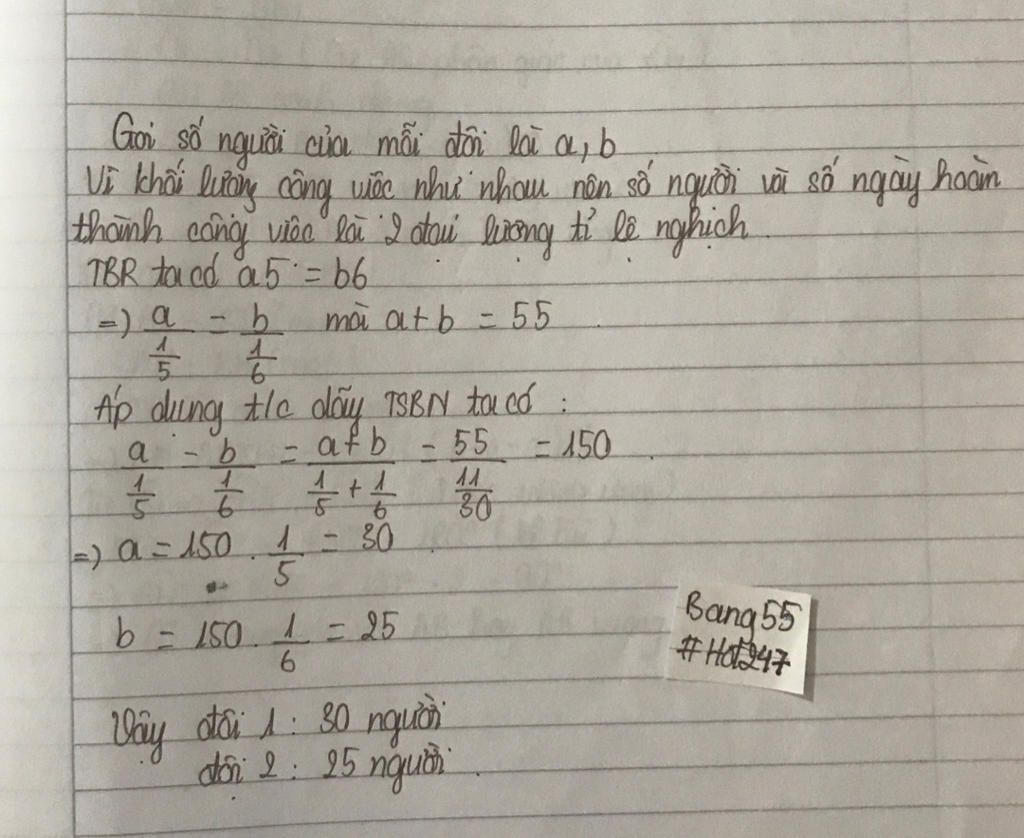 Gọi số người của mỗi đội là a, b
Vì khối lượng công việc như nhau nên số người và số ngày hoàn
thành công việc là 2 đại lượng tỉ lệ nghịch.
TBR ta có a5 = b6
=) a/(1/5) = b/(1/6) mà a+b = 55
Áp dụng t/c dãy TSBN ta có :
a/(1/5) = b/(1/6) = (a+b)/(1/5 + 1/6) = 55/(11/30) = 150
=) a = 150 . 1/5 = 30
b = 150 . 1/6 = 25
Bang55
#Hot247
Vậy đội 1 : 30 người
đội 2 : 25 người.